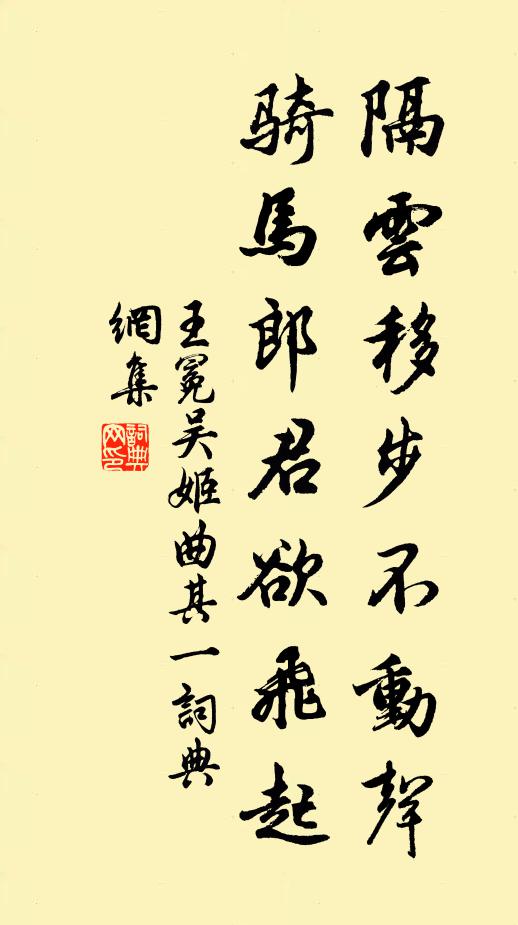 隔雲移步不動聲
騎馬郎君欲飛起
王冕吴姬曲其一詞典
網集
詞典網印